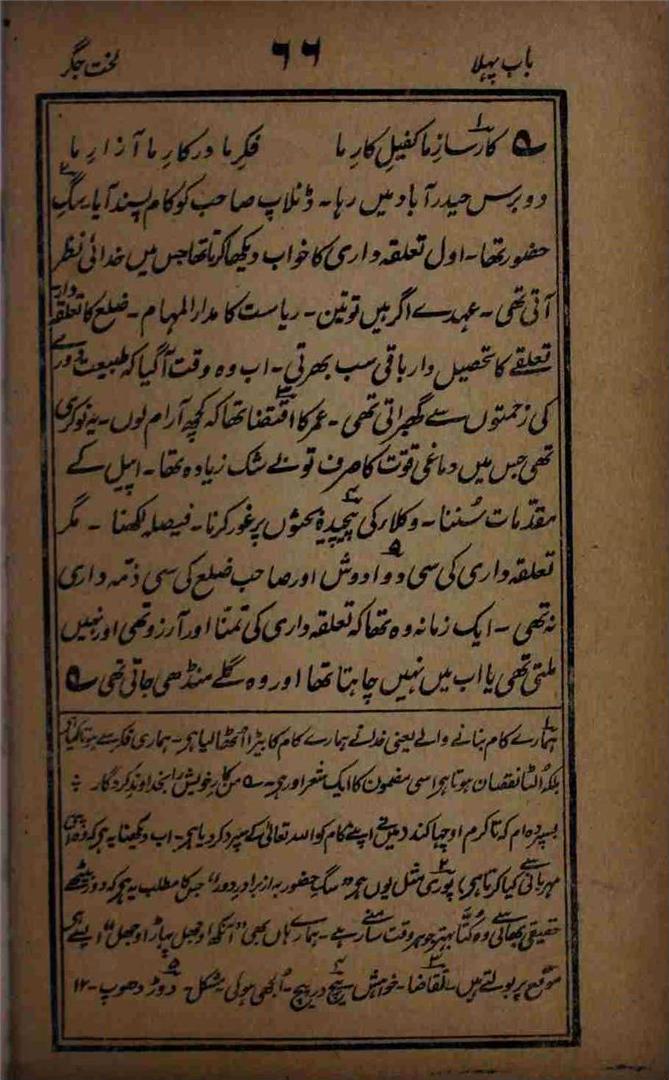 باب پہلا ۶۶ لخت جگر
؎ کارسازِ ما کفیلِ کارِ ما فکرِ ما در کارِ ما آزارِ ما
دو برس حیدرآباد میں رہا۔ ڈنلاپ صاحب کو کام پسند آیا۔ سگِ
حضور تھا۔ اول تعلقہ داری کا خواب دیکھا کرتا تھا جس میں خدائی نظر
آتی تھی۔ عہدے اگر ہیں تو تین۔ ریاست کا مدار المہام۔ ضلع کا تعلقہ دار
تعلقے کا تحصیل دار باقی سب بھرتی۔ اب وہ وقت آگیا کہ طبیعت دورے
کی زحمتوں سے گھبراتی تھی۔ عمر کا اقتضا تھا کہ کچھ آرام لوں۔ یہ نوکری
تھی جس میں دماغی قوت کا صرف تو بے شک زیادہ تھا۔ اپیل کے
مقدمات سُننا۔ وکلاء کی پیچیدہ بحثوں پر غور کرنا۔ فیصلہ لکھنا ۔ مگر
تعلقہ داری کی سی دوا دوش اور صاحب ضلع کی سی ذمہ داری
نہ تھی ۔ ایک زمانہ وہ تھا کہ تعلقہ داری کی تمنا اور آرزو تھی اور نہیں
ملتی تھی یا اب میں نہیں چاہتا تھا اور وہ گلے منڈھی جاتی تھی ؎
۱ ہمارے کام بنانے والے یعنی خدا نے ہمارے کام کا بیڑا اُٹھا لیا ہے۔ ہماری فکر سے ہوتا کیا ہے
بلکہ اُلٹا نقصان ہوتا ہے اسی مضمون کا ایک شعر اور ہے۔ ؎ من کارِ خویش را بخداوندِ کردگار ؞
بسپردہ ام کہ تا کرم او چہا کند (میں نے اپنے کام کو اللہ تعالیٰ کے سپرد کر دیا ہے۔ اب دیکھنا یہ ہے کہ وہ اپنی
مہربانی سے کیا کرتا ہے) ۲ پوری مثل یوں ہے "سگِ حضور بہ از برادرِ دور" جس کا مطلب یہ ہے کہ دور بیٹھے
حقیقی بھائی سے وہ کُتا بہتر جو ہر وقت سامنے رہے۔ ہمارے ہاں بھی "آنکھ اوجھل پہاڑ اوجھل" ایسے ہی
موقع پر بولتے ہیں۔ ۳ تقاضا۔ خواہش ۴ پیچ در پیچ۔ اُلجھی ہوئی۔ مشکل۔ ۵ دوڑ دھوپ۔ ۱۲